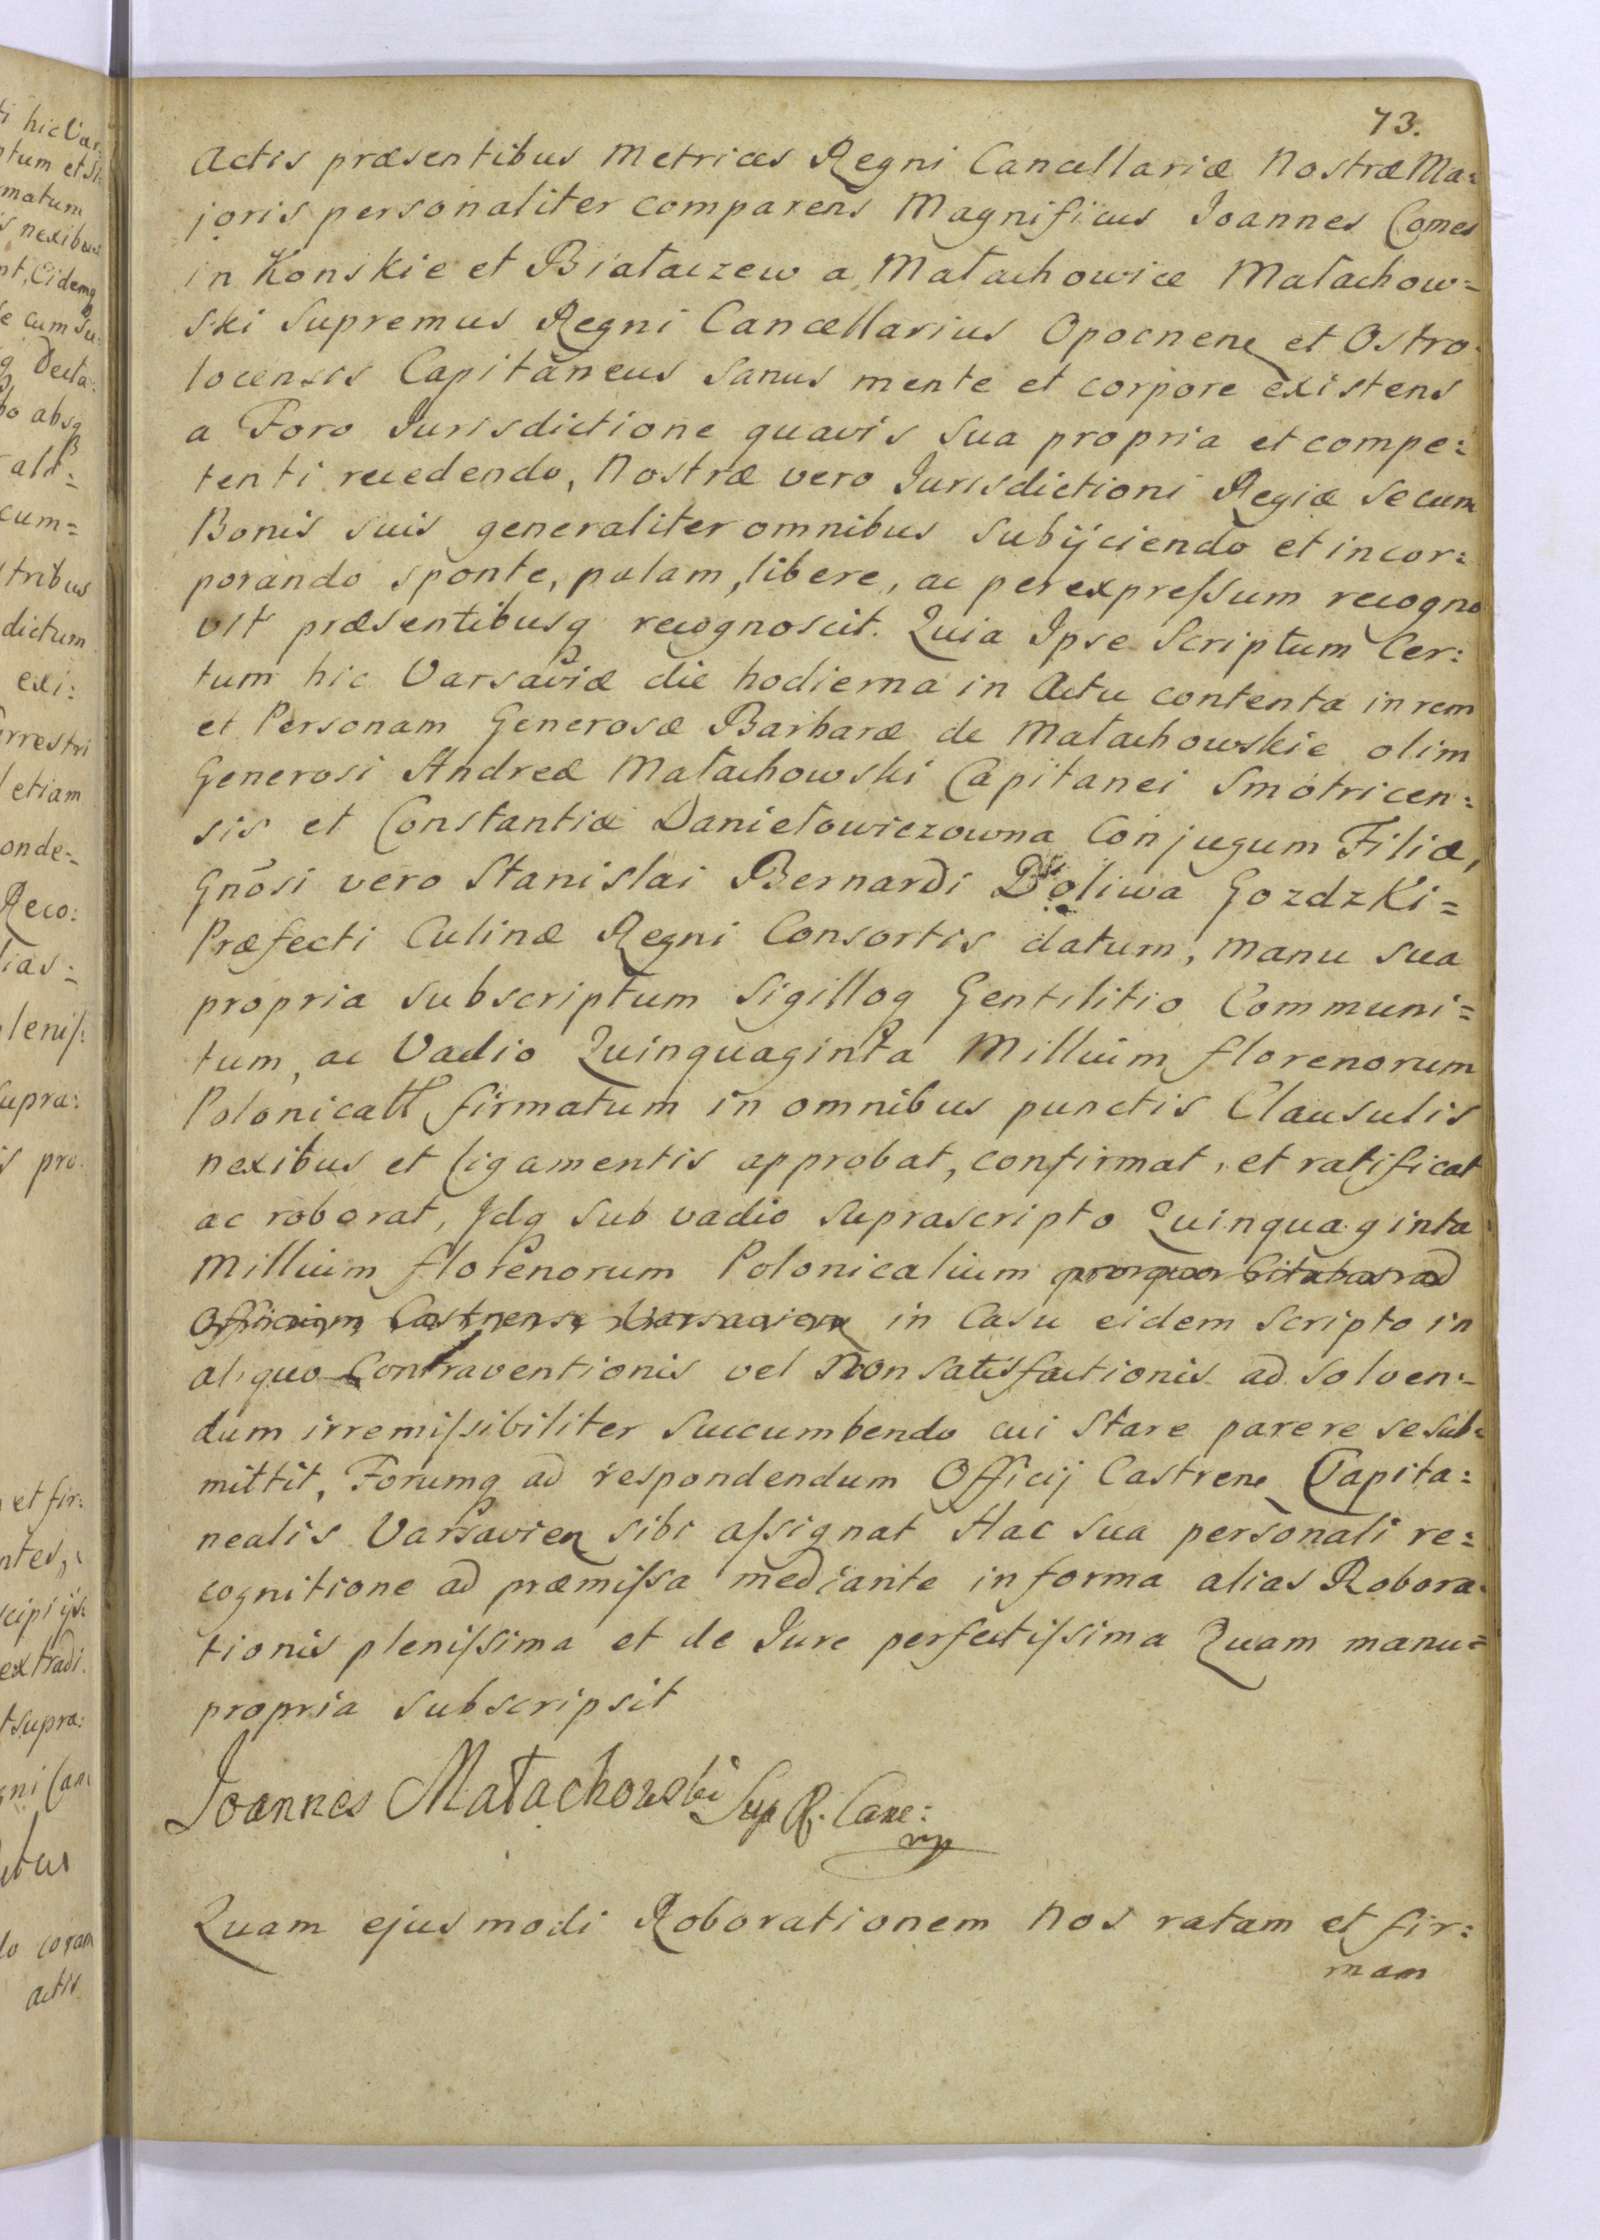 73.
Actis præsentibus Metrices Regni Cancellariæ Nostræ Ma:
joris personaliter comparens Magnificus Joannes Comes
in Konskie et Białaczew a Małachowice Małachow=
ski Supremus Regni Cancellarius Opocnen et Ostro
locensis Capitaneus sanus mente et corpore existens
a Foro Jurisdictione quavis sua propria et compe:
tenti recedendo, Nostræ vero Jurisdictioni Regiæ se cum
Bonis suis generaliter omnibus subijciendo et incor:
porando sponte, palam, libere, ac per expressum recogno
vit præsentibusq recognoscit. Quia Ipse Scriptum Cer:
tum hic Varsaviæ die hodierna in Actu contenta in rem
et Personam Generosæ Barbaræ de Małachowskie olim
Generosi Andreæ Małachowski Capitanei Smotricen:
sis et Constantiæ Daniełowiczowna Conjugum Filiæ,
Gnōsi vero Stanislai Bernardi Doliwa Gozdzki=
Præfecti Culinæ Regni Consortis datum, manu sua
propria subscriptum Sigilloq Gentilitio Communi=
tum, ac Vadio Quinquaginta Millium florenorum
Polonicall firmatum in omnibus punctis Clausulis
nexibus et ligamentis approbat, confirmat, et ratificat
ac roborat, Idq sub vadio suprascripto Quinquaginta
Millium florenorum Polonicalium
Officium Castrense in Casu eidem Scripto in
aliquo Contraventionis vel Non satisfactionis ad solven:
dum irremissibiliter succumbendo cui stare parere se sub:
mittit, Forumq ad respondendum Officij Castren Capita:
nealis Varsavien sibi assignat Hac sua personali re:
cognitione ad præmissa mediante in forma alias Robora
tionis plenissima et de Jure perfectissima Quam manu=
propria subscripsit
Joannes Małachowski Sup R. Canc:
mp
Quam ejusmodi Roborationem Nos ratam et fir:
mam